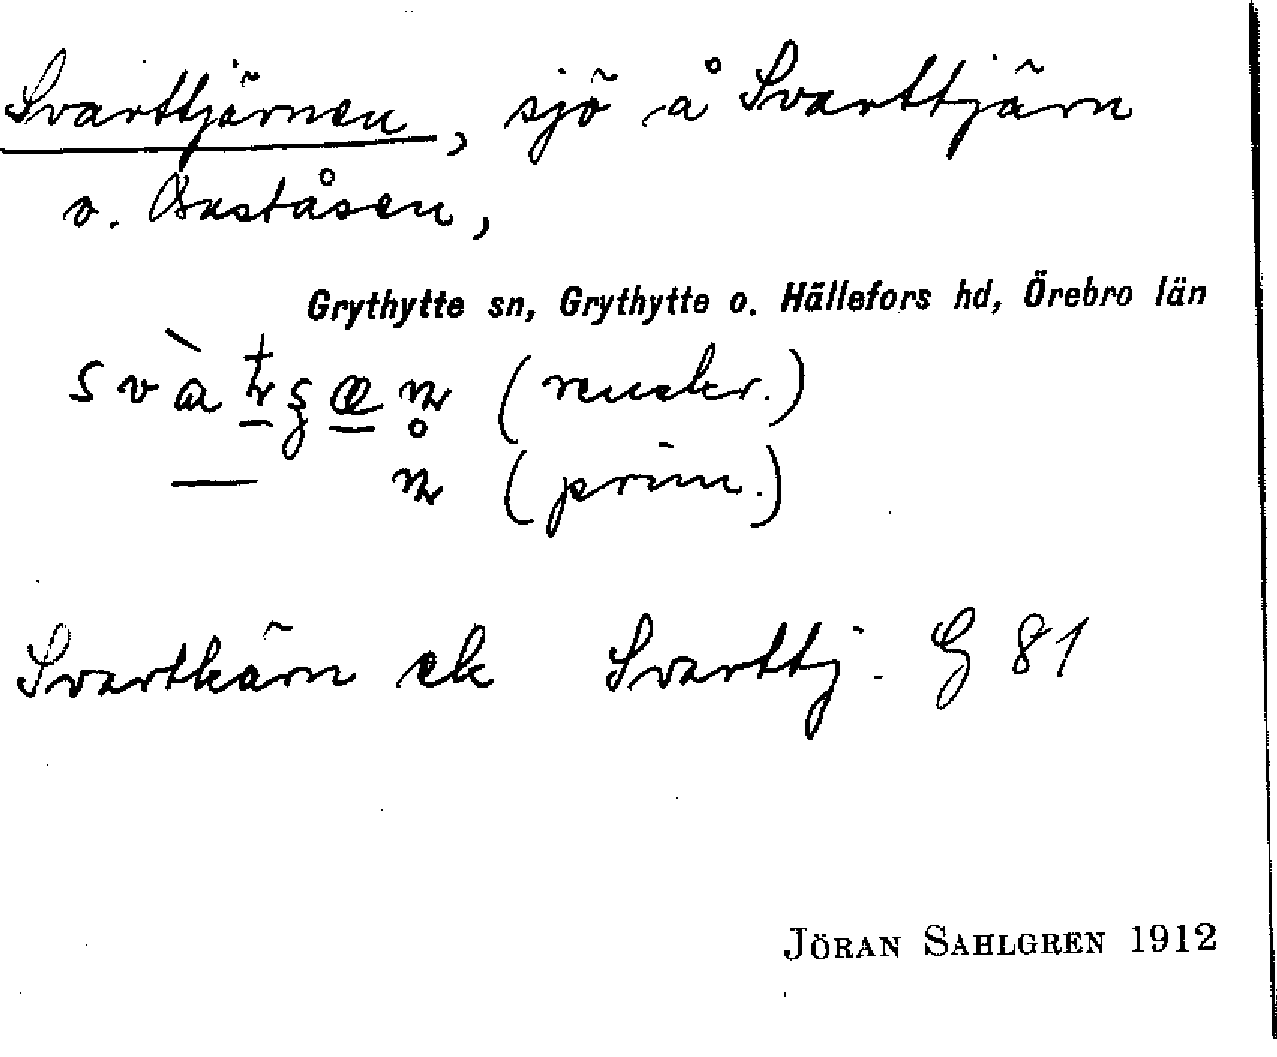 Svarttjärnen, sjö å Svarttjärn
o. Guståsen,
Grythytte sn, Grythytte o. Hällefors hd, Örebro län
(yngre.)
n (prim.)
Svartkärn ek Svarttj. G 81
JÖRAN SAHLGREN 1912